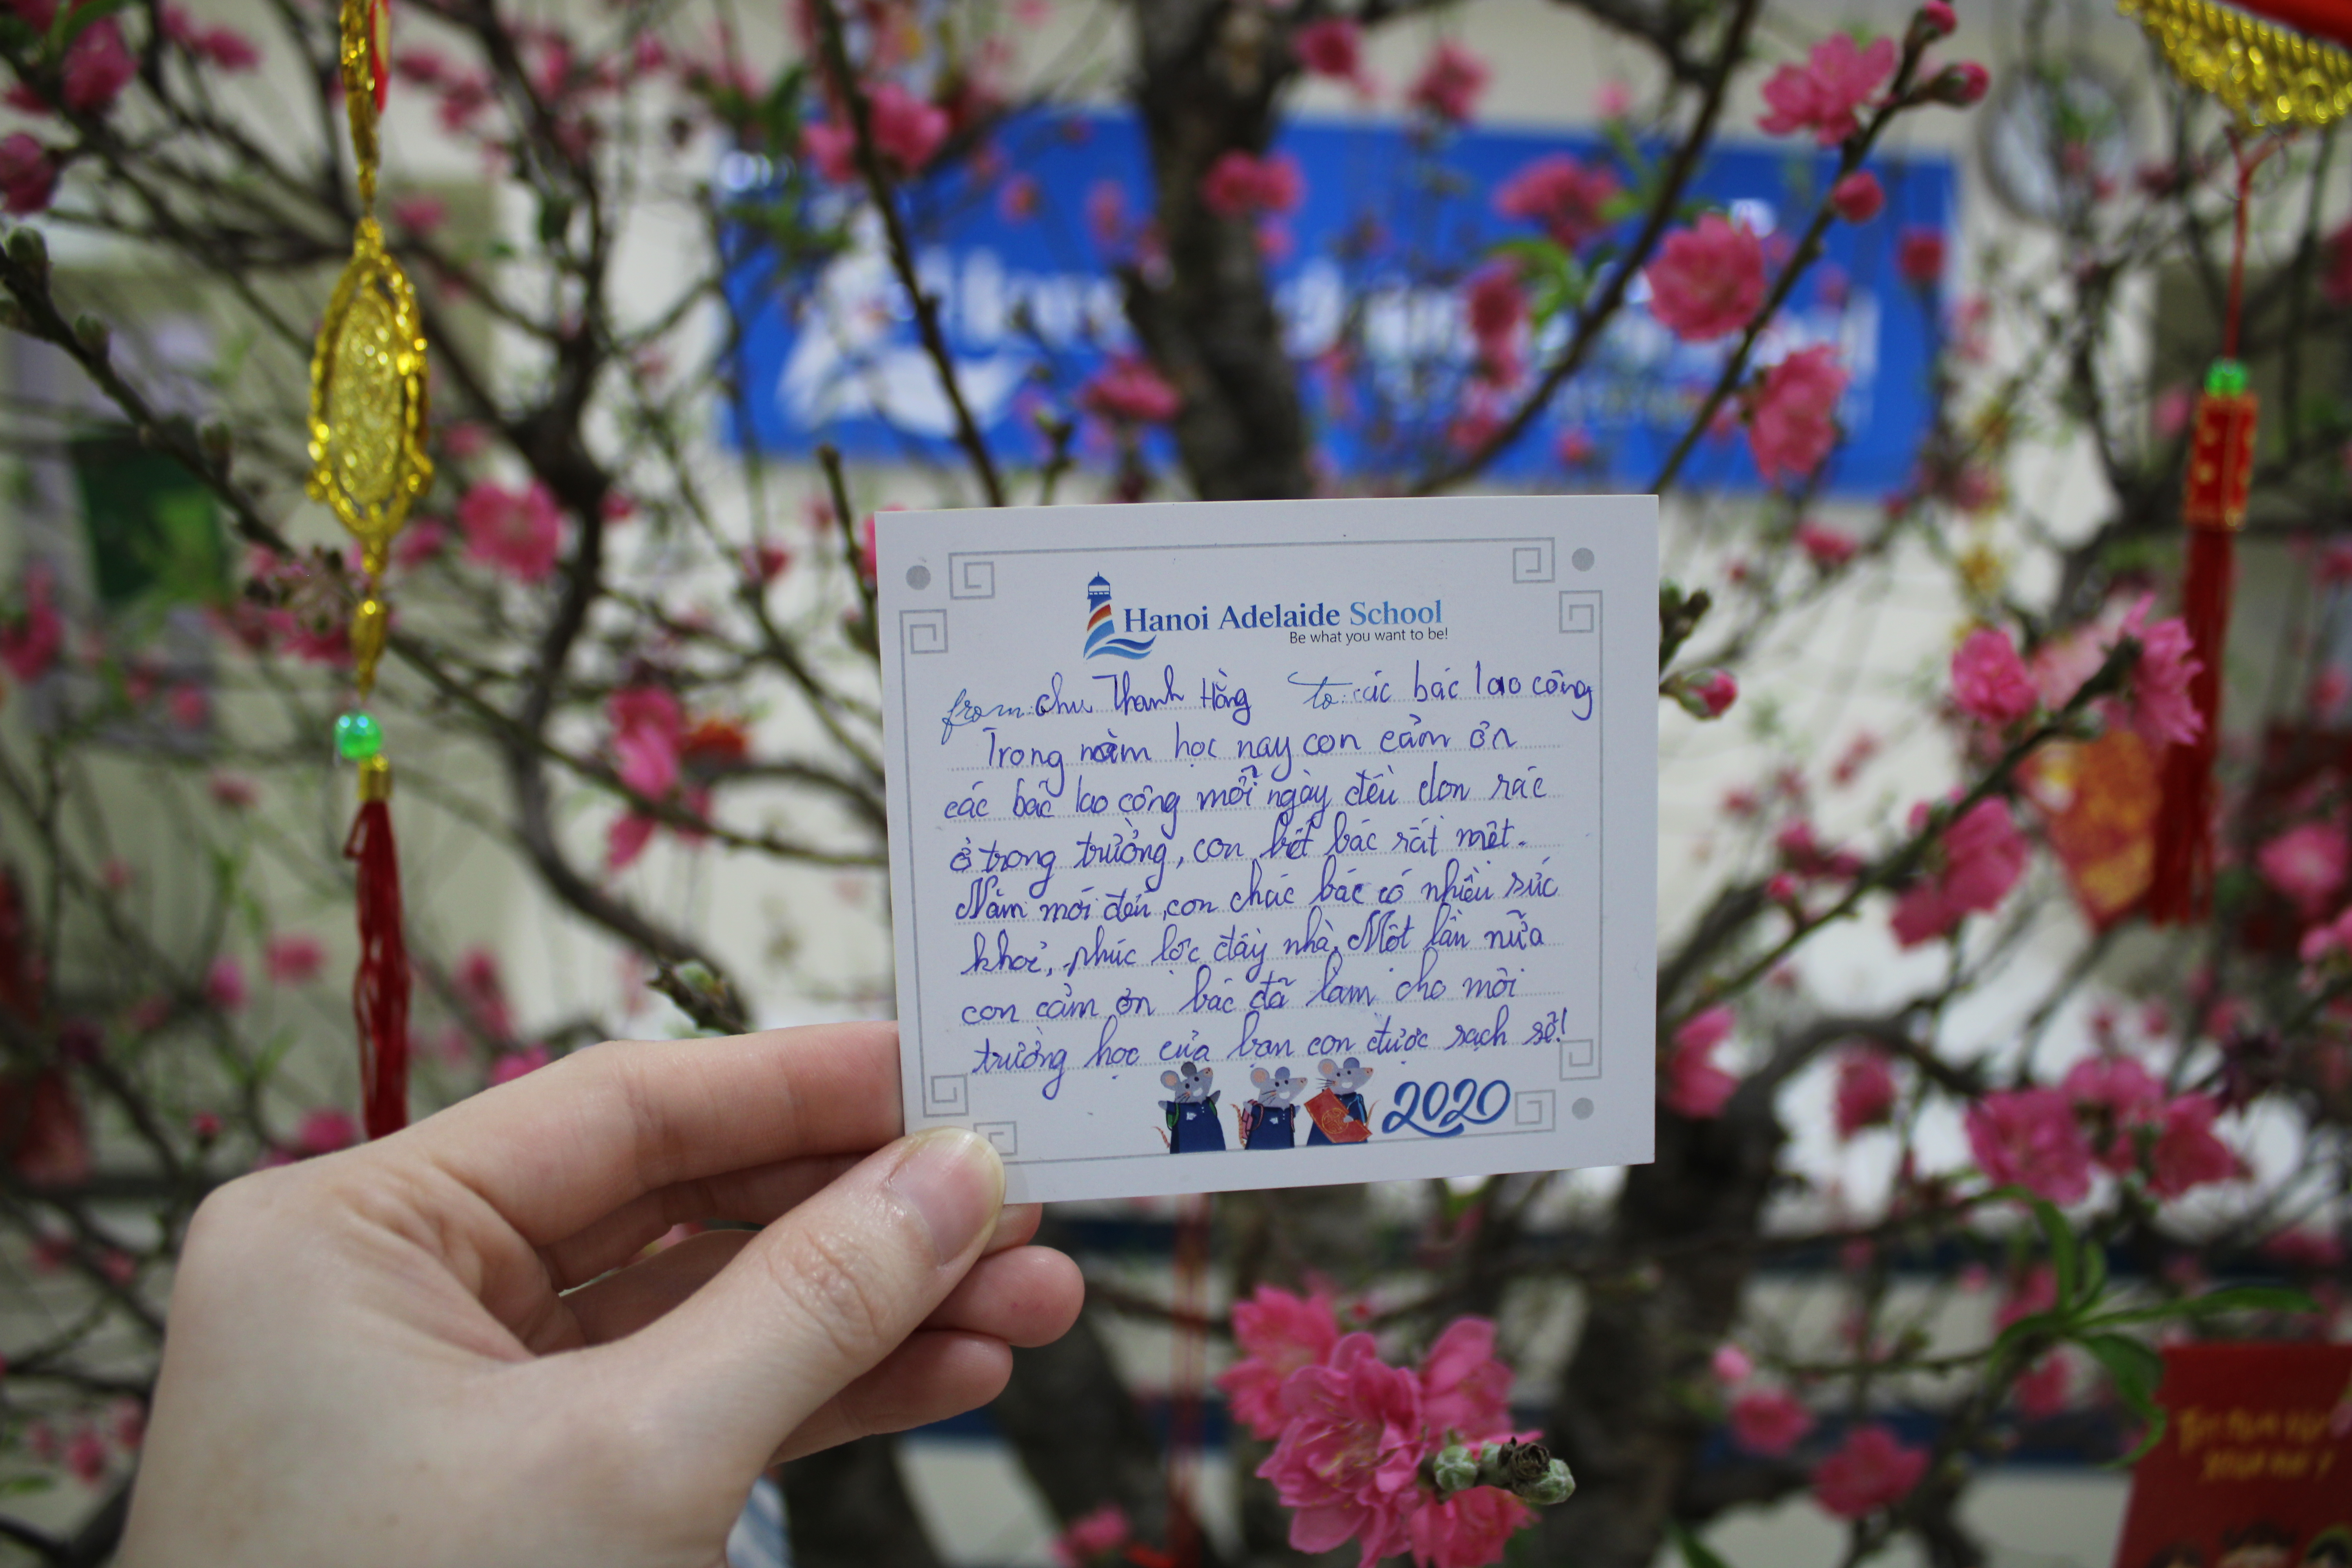 Hanoi Adelaide School
Be what you want to be!
from: Chu Thanh Hằng to: các bác lao công
Trong năm học nay con cảm ơn
các bác lao công mỗi ngày đều dọn rác
ở trong trường, con biết bác rất mệt.
Năm mới đến, con chúc bác có nhiều sức
khoẻ, phúc lộc đầy nhà. Một lần nữa
con cảm ơn bác đã làm cho môi
trường học của bạn con được sạch sẽ!
2020